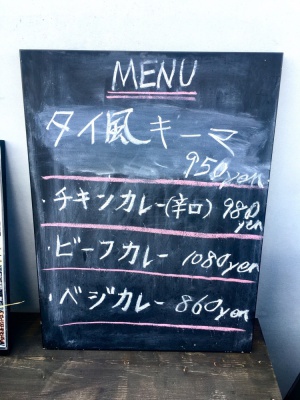 MENU
タイ風キーマ
950yen
・チキンカレー(辛口) 980
yen
・ビーフカレー 1080yen
・ベジカレー 860yen